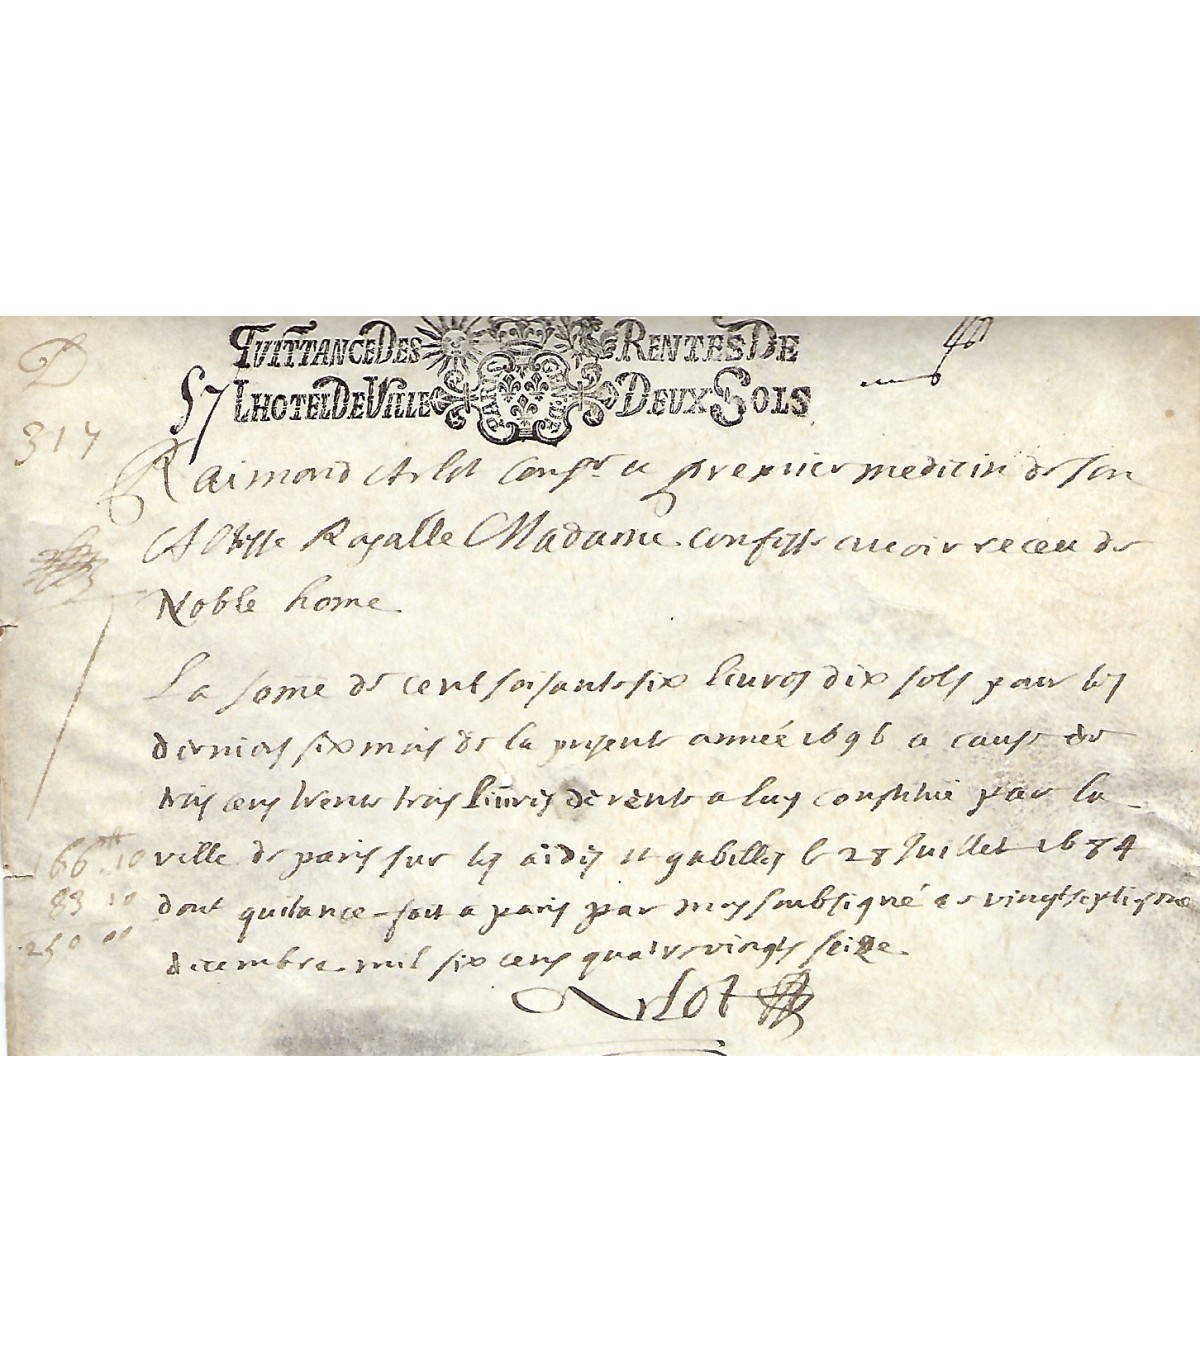 QUITTANCE DES RENTES DE
LHOTEL DE VILLE DEUX SOLS
57
317
Raimond Arlot Consr. et premier medicin de son
Altesse Royalle Madame confesse avoir receu de
Noble home
La some de cent soisante six livres dix sols pour les
derniers six mois de la presente année 1696 a cause de
trois cens trente trois livres de rente a luy constitué par la
ville de paris sur les aides et gabelles le 28 Juillet 1684
dont quitance fait a paris par moy soubsigné ce vingt septiesme
decembre mil six cens quatre vingts seize
166 10
83 10
250 00
Arlot